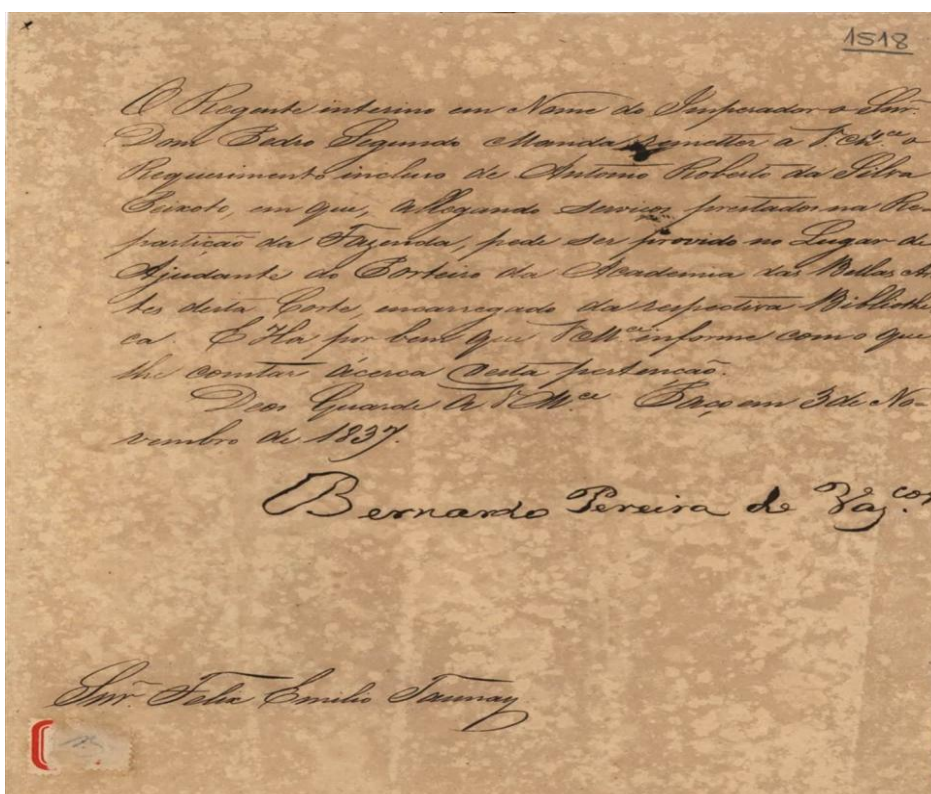 1518
O Regente interino em Nome do Imperador o Snr.
Dom Pedro Segundo Manda remetter a V. M.ce o
Requerimento incluso de Antonio Roberto da Silva
Peixoto, em que, allegando serviços prestados na Re-
partição da Fazenda, pede ser provido no Lugar de
Ajudante do Porteiro da Academia das Bellas Ar
tes desta Corte, encarregado da respectiva Bibliothe
ca. E Ha por bem que V. M.ce informe com o que
lhe constar ácerca desta pertenção.
Deos Guarde a V. M.ce Paço em 3 de No-
vembro de 1837.
Bernardo Pereira de Vas.cos
Snr. Felix Emilio Taunay